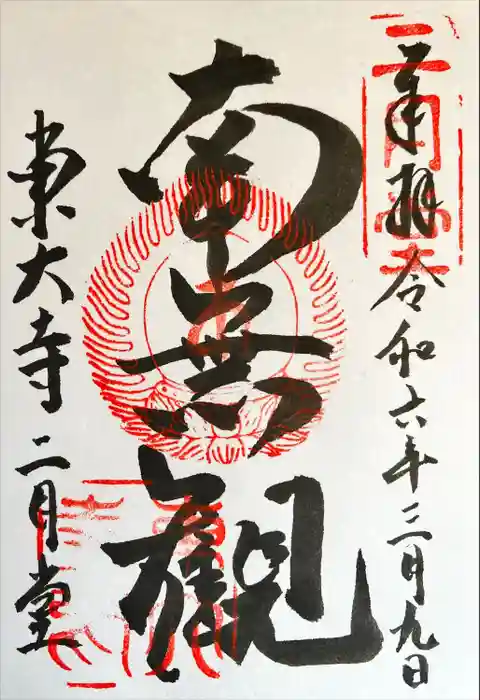 奉拝 令和六年三月九日
南無観
東大寺 二月堂